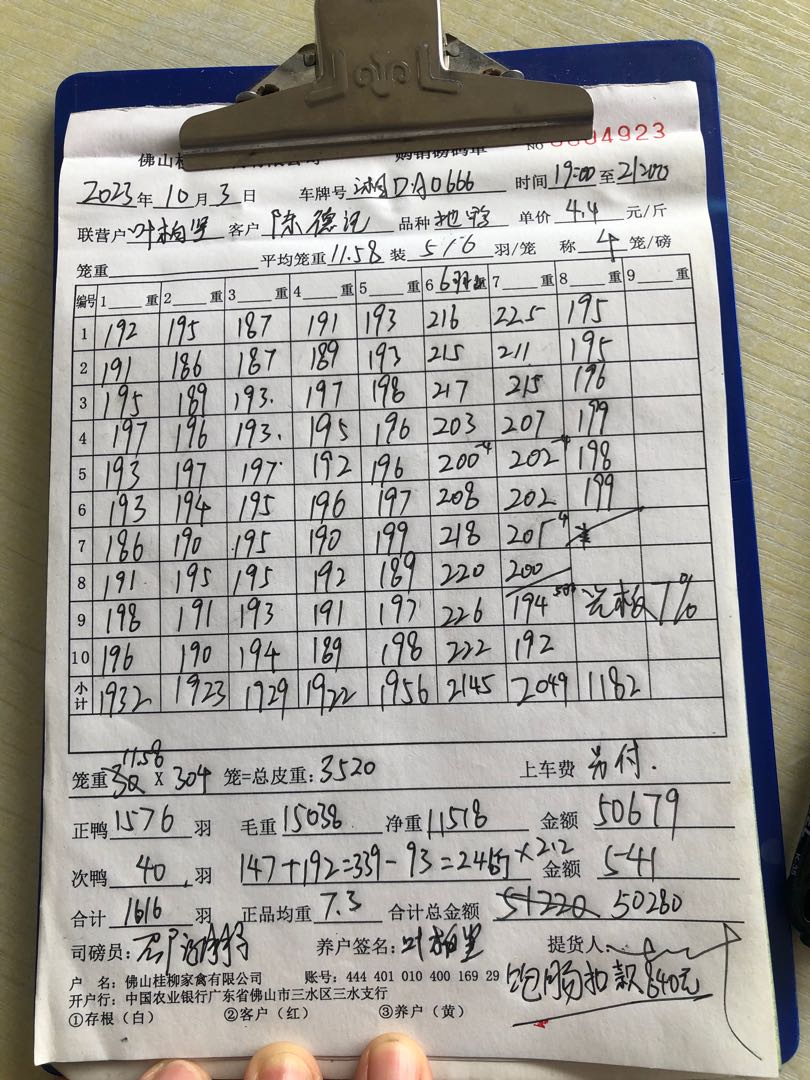 佛山桂 购销磅码单 NO 4923
2023年10月3日 车牌号 湘DA0666 时间19:00至21:00
联营户 叶柏坚 客户 陈德记 品种 单价4.4元/斤
笼重 平均笼重11.58装5/6羽/笼 称4笼/磅
编号 1 重 2 重 3 重 4 重 5 重 6 6羽重 7 重 8 重 9 重
1 192 195 187 191 193 216 225 195
2 191 186 187 189 193 215 211 195
3 195 189 193. 197 198 217 215 196
4 197 196 193. 195 196 203 207 199
5 193 197 197 192 196 200-4 202-4 198
6 193 194 195 196 197 208 202 199
7 186 190 195 190 199 218 205-4
8 191 195 195 192 189 220 200
9 198 191 193 191 197 226 194 7%
10 196 190 194 189 198 222 192
小计 1932 1923 1929 1922 1956 2145 2049 1182
11.58
笼重 X 304 笼=总皮重:3520 上车费 另付.
正鸭1576羽 毛重15038 净重11518 金额50679
次鸭40羽 147+192=339-93=246斤×2.2 金额541
合计1616羽 正品均重7.3 合计总金额 51220 50280
司磅员: 养户签名:叶柏坚 提货人:
户 名:佛山桂柳家禽有限公司 账号:444 401 010 400 169 29
饱肠扣款840元
开户行:中国农业银行广东省佛山市三水区三水支行
①存根(白) ②客户(红) ③养户(黄)